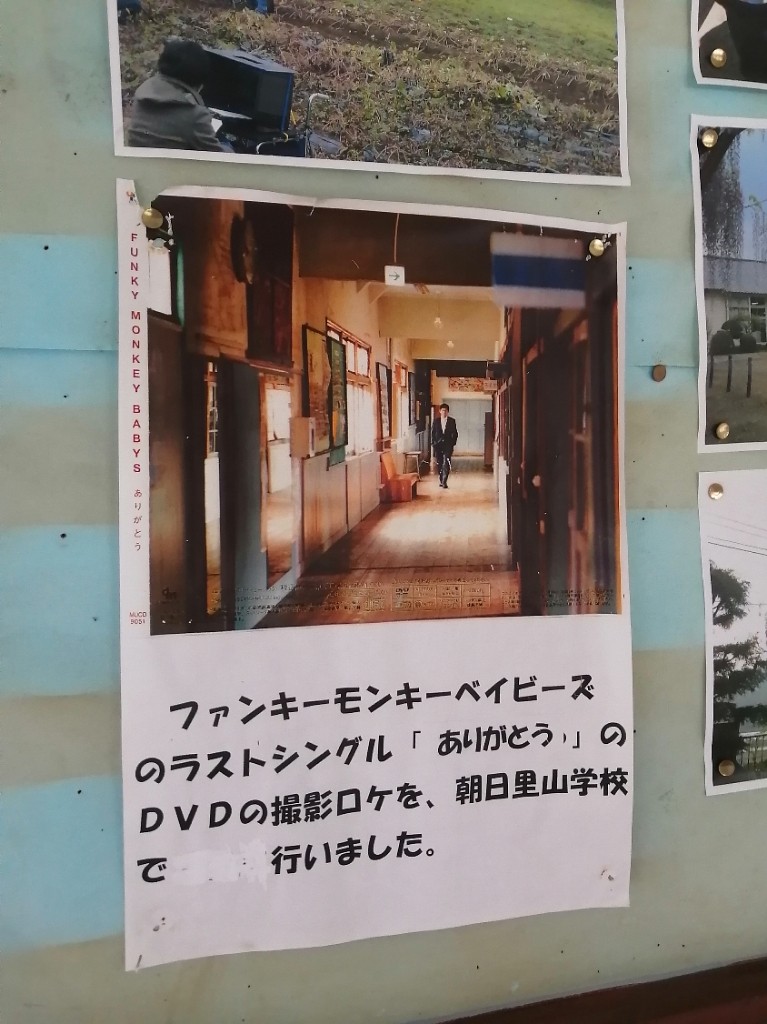 FUNKY MONKEY BABYS ありがとう
MUCD
9051
ファンキーモンキーベイビーズ
のラストシングル「ありがとう」の
DVDの撮影ロケを、朝日里山学校
で 行いました。